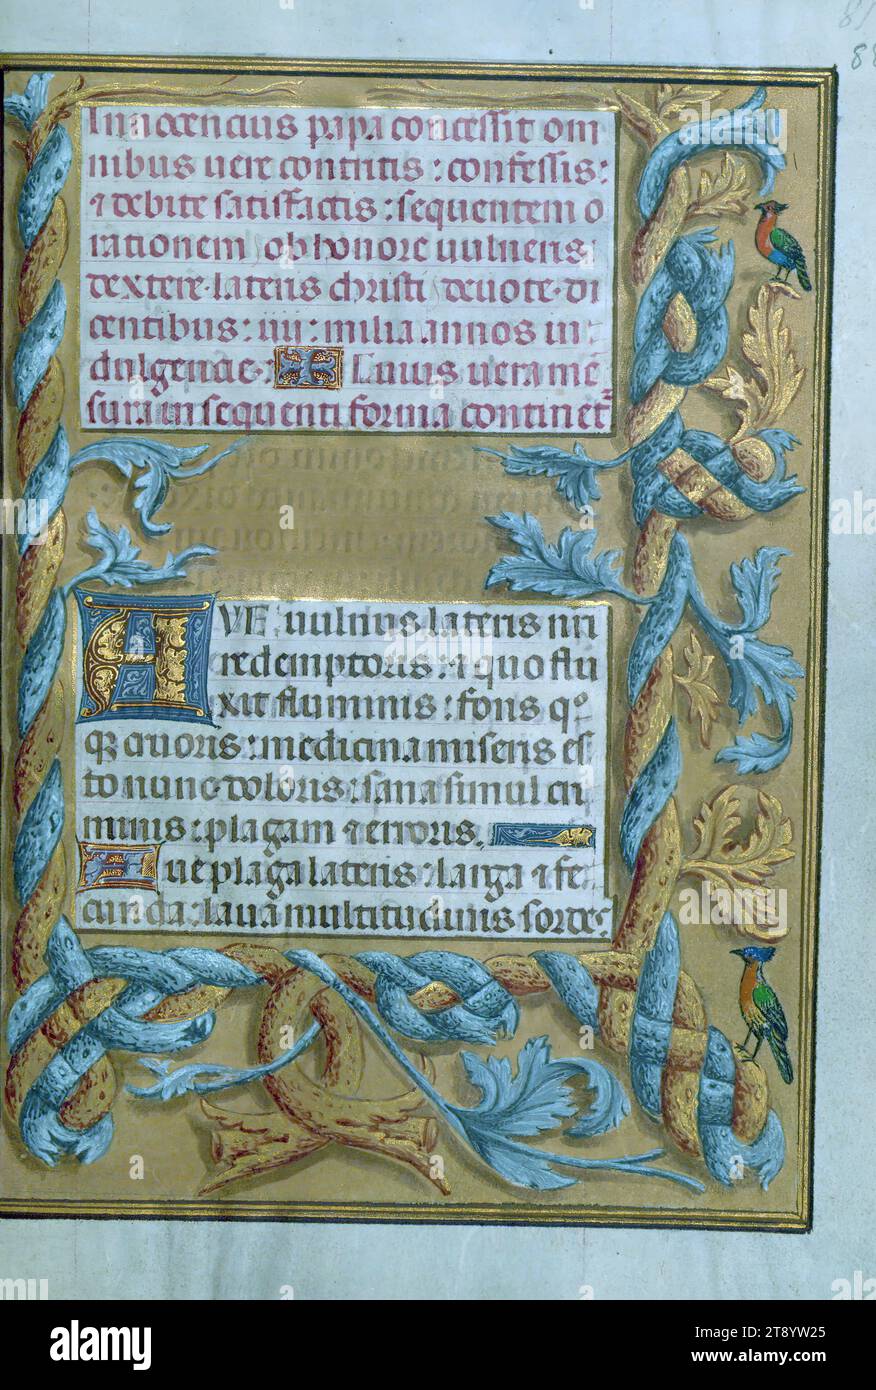 81
88
Innocencius papa concessit om
nibus vere contritis : confessis :
⁊ debite satisfactis : sequentem o
rationem ob honore vulneris
dextere lateris christi devote di
centibus : iiii : milia annos in
dulgencie. Huius vera mē
suram sequenti forma continet᷑
AVE vulnus lateris nri
redemptoris : ⁊ quo flu
xit fluminis : fons qꝫ
cruoris : medicina miseris es
to nunc doloris : sana simul cri
minis : plagam ⁊ erroris.
Ave plaga lateris : larga ⁊ fe
cunda : lava multitudinis sordes
alamy
Image ID: 2T8YW25
www.alamy.com